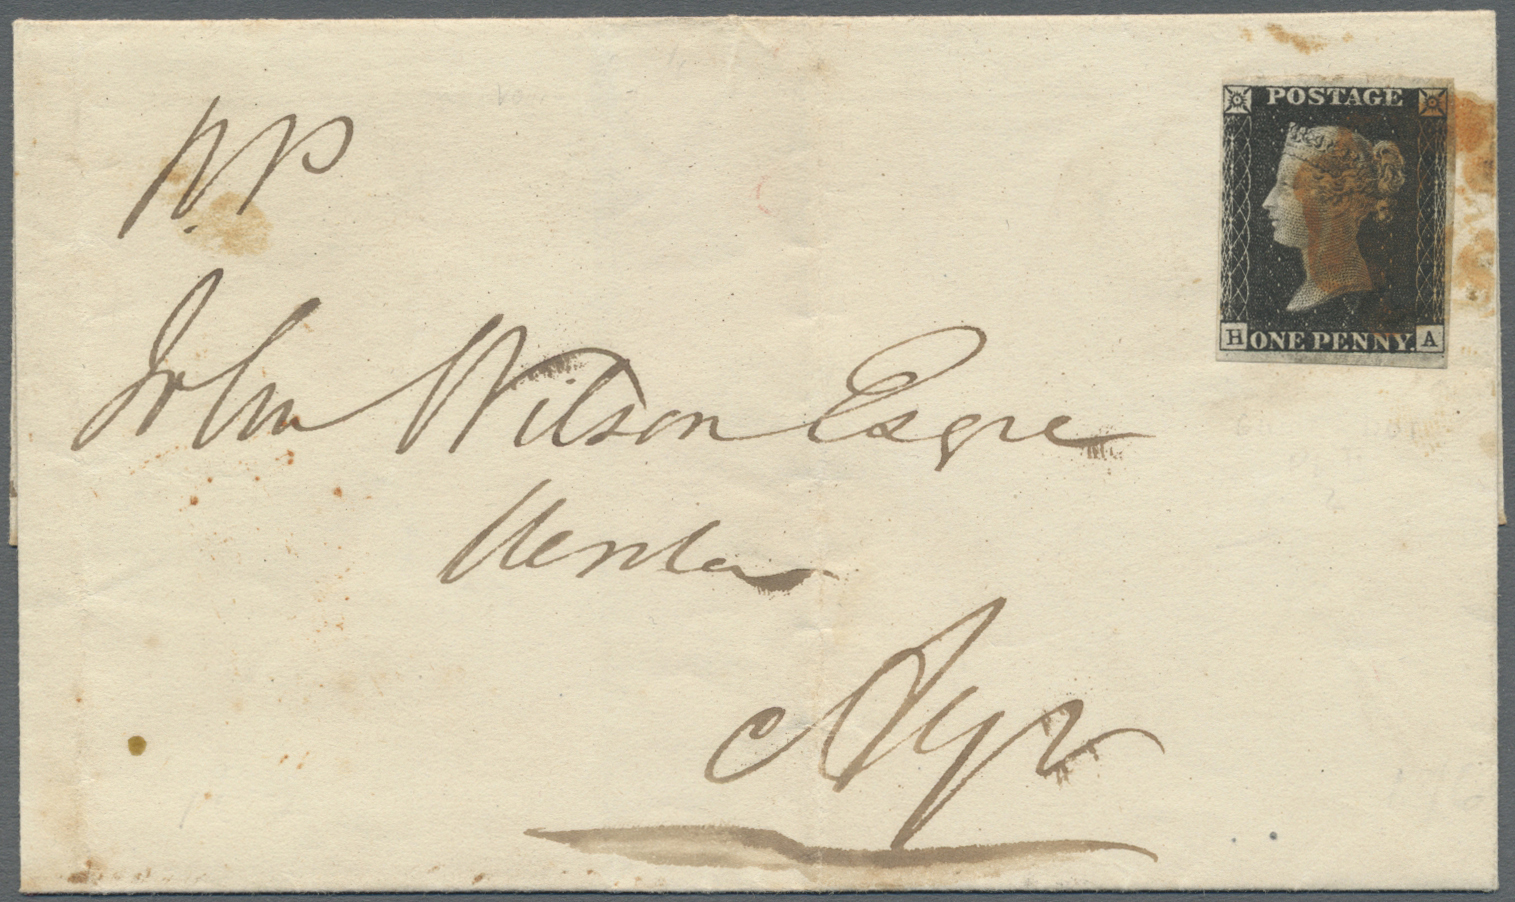 POSTAGE
H ONE PENNY. A
pp
John Wilson Esqre
Ayr